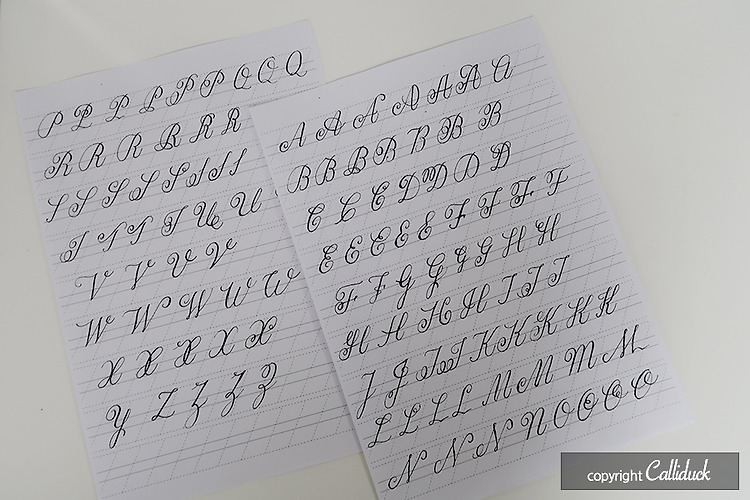 P P P P P P Q Q Q
R R R R R R
S S S S S S S S
T T T T U U
V V V V
W W W W W
X X X X X
Y Z Z Z Z
A A A A A A A
B B B B B B B
C C C D D D D
E E E E E F F F F
F F G G G G H H
H H H H I I I
J J J J K K K K K
L L L L M M M M
N N N N O O O O
copyright Calliduck